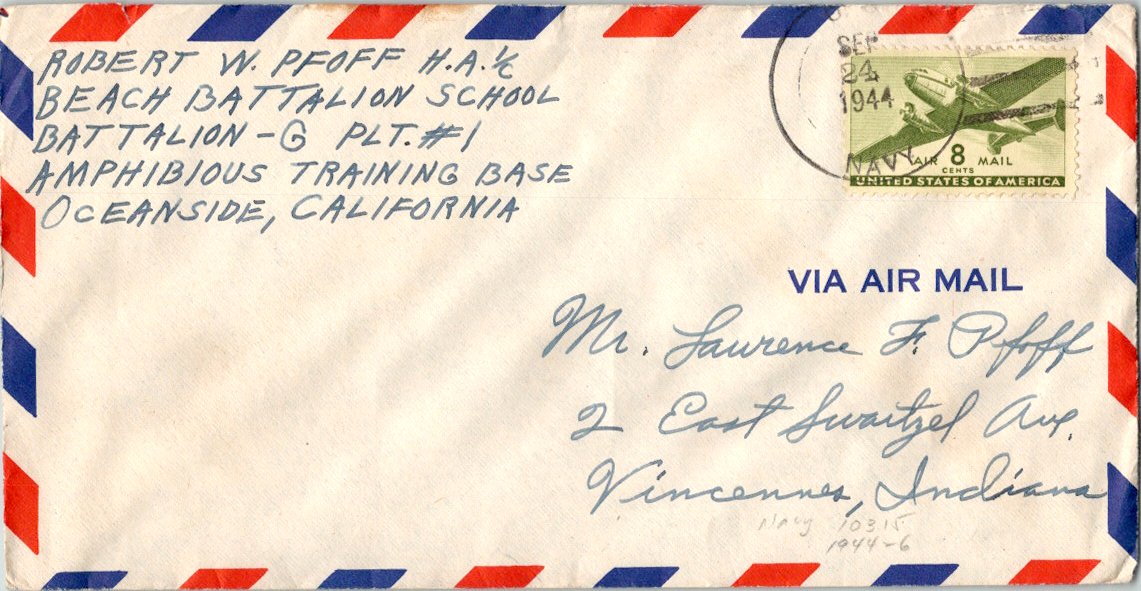 ROBERT W. PFOFF H.A. 1/c
BEACH BATTALION SCHOOL
BATTALION-G PLT.#1
AMPHIBIOUS TRAINING BASE
OCEANSIDE, CALIFORNIA
SEP
24
1944
NAVY
AIR 8 MAIL
CENTS
UNITED STATES OF AMERICA
VIA AIR MAIL
Mr. Laurence F. Pfoff
2 East Swartzel Ave.
Vincennes, Indiana
Navy 10315
1944-6